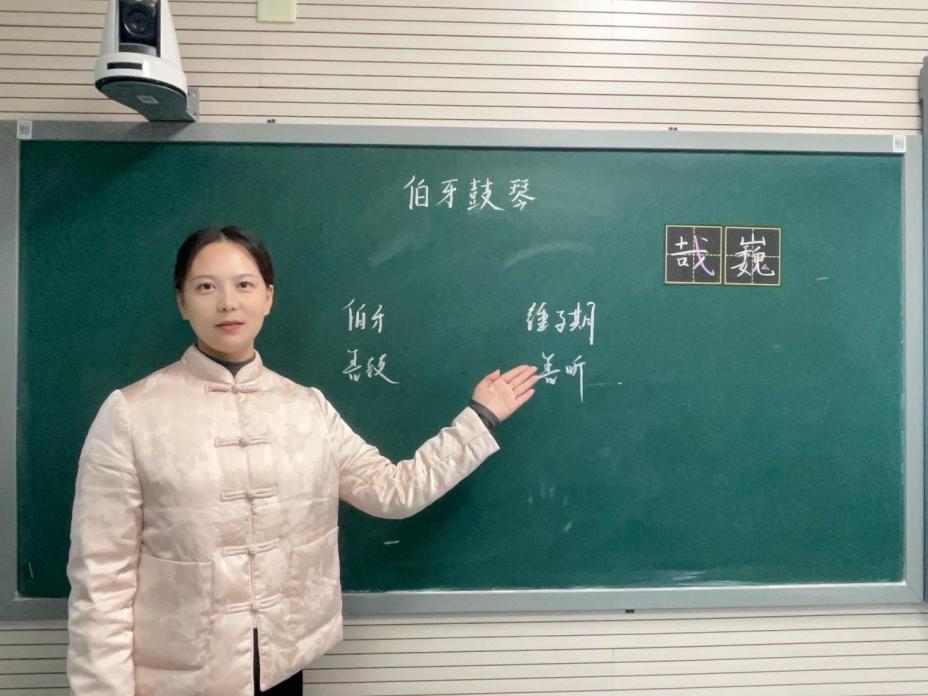 伯牙鼓琴
哉 巍
伯牙 锺子期
善鼓 善听